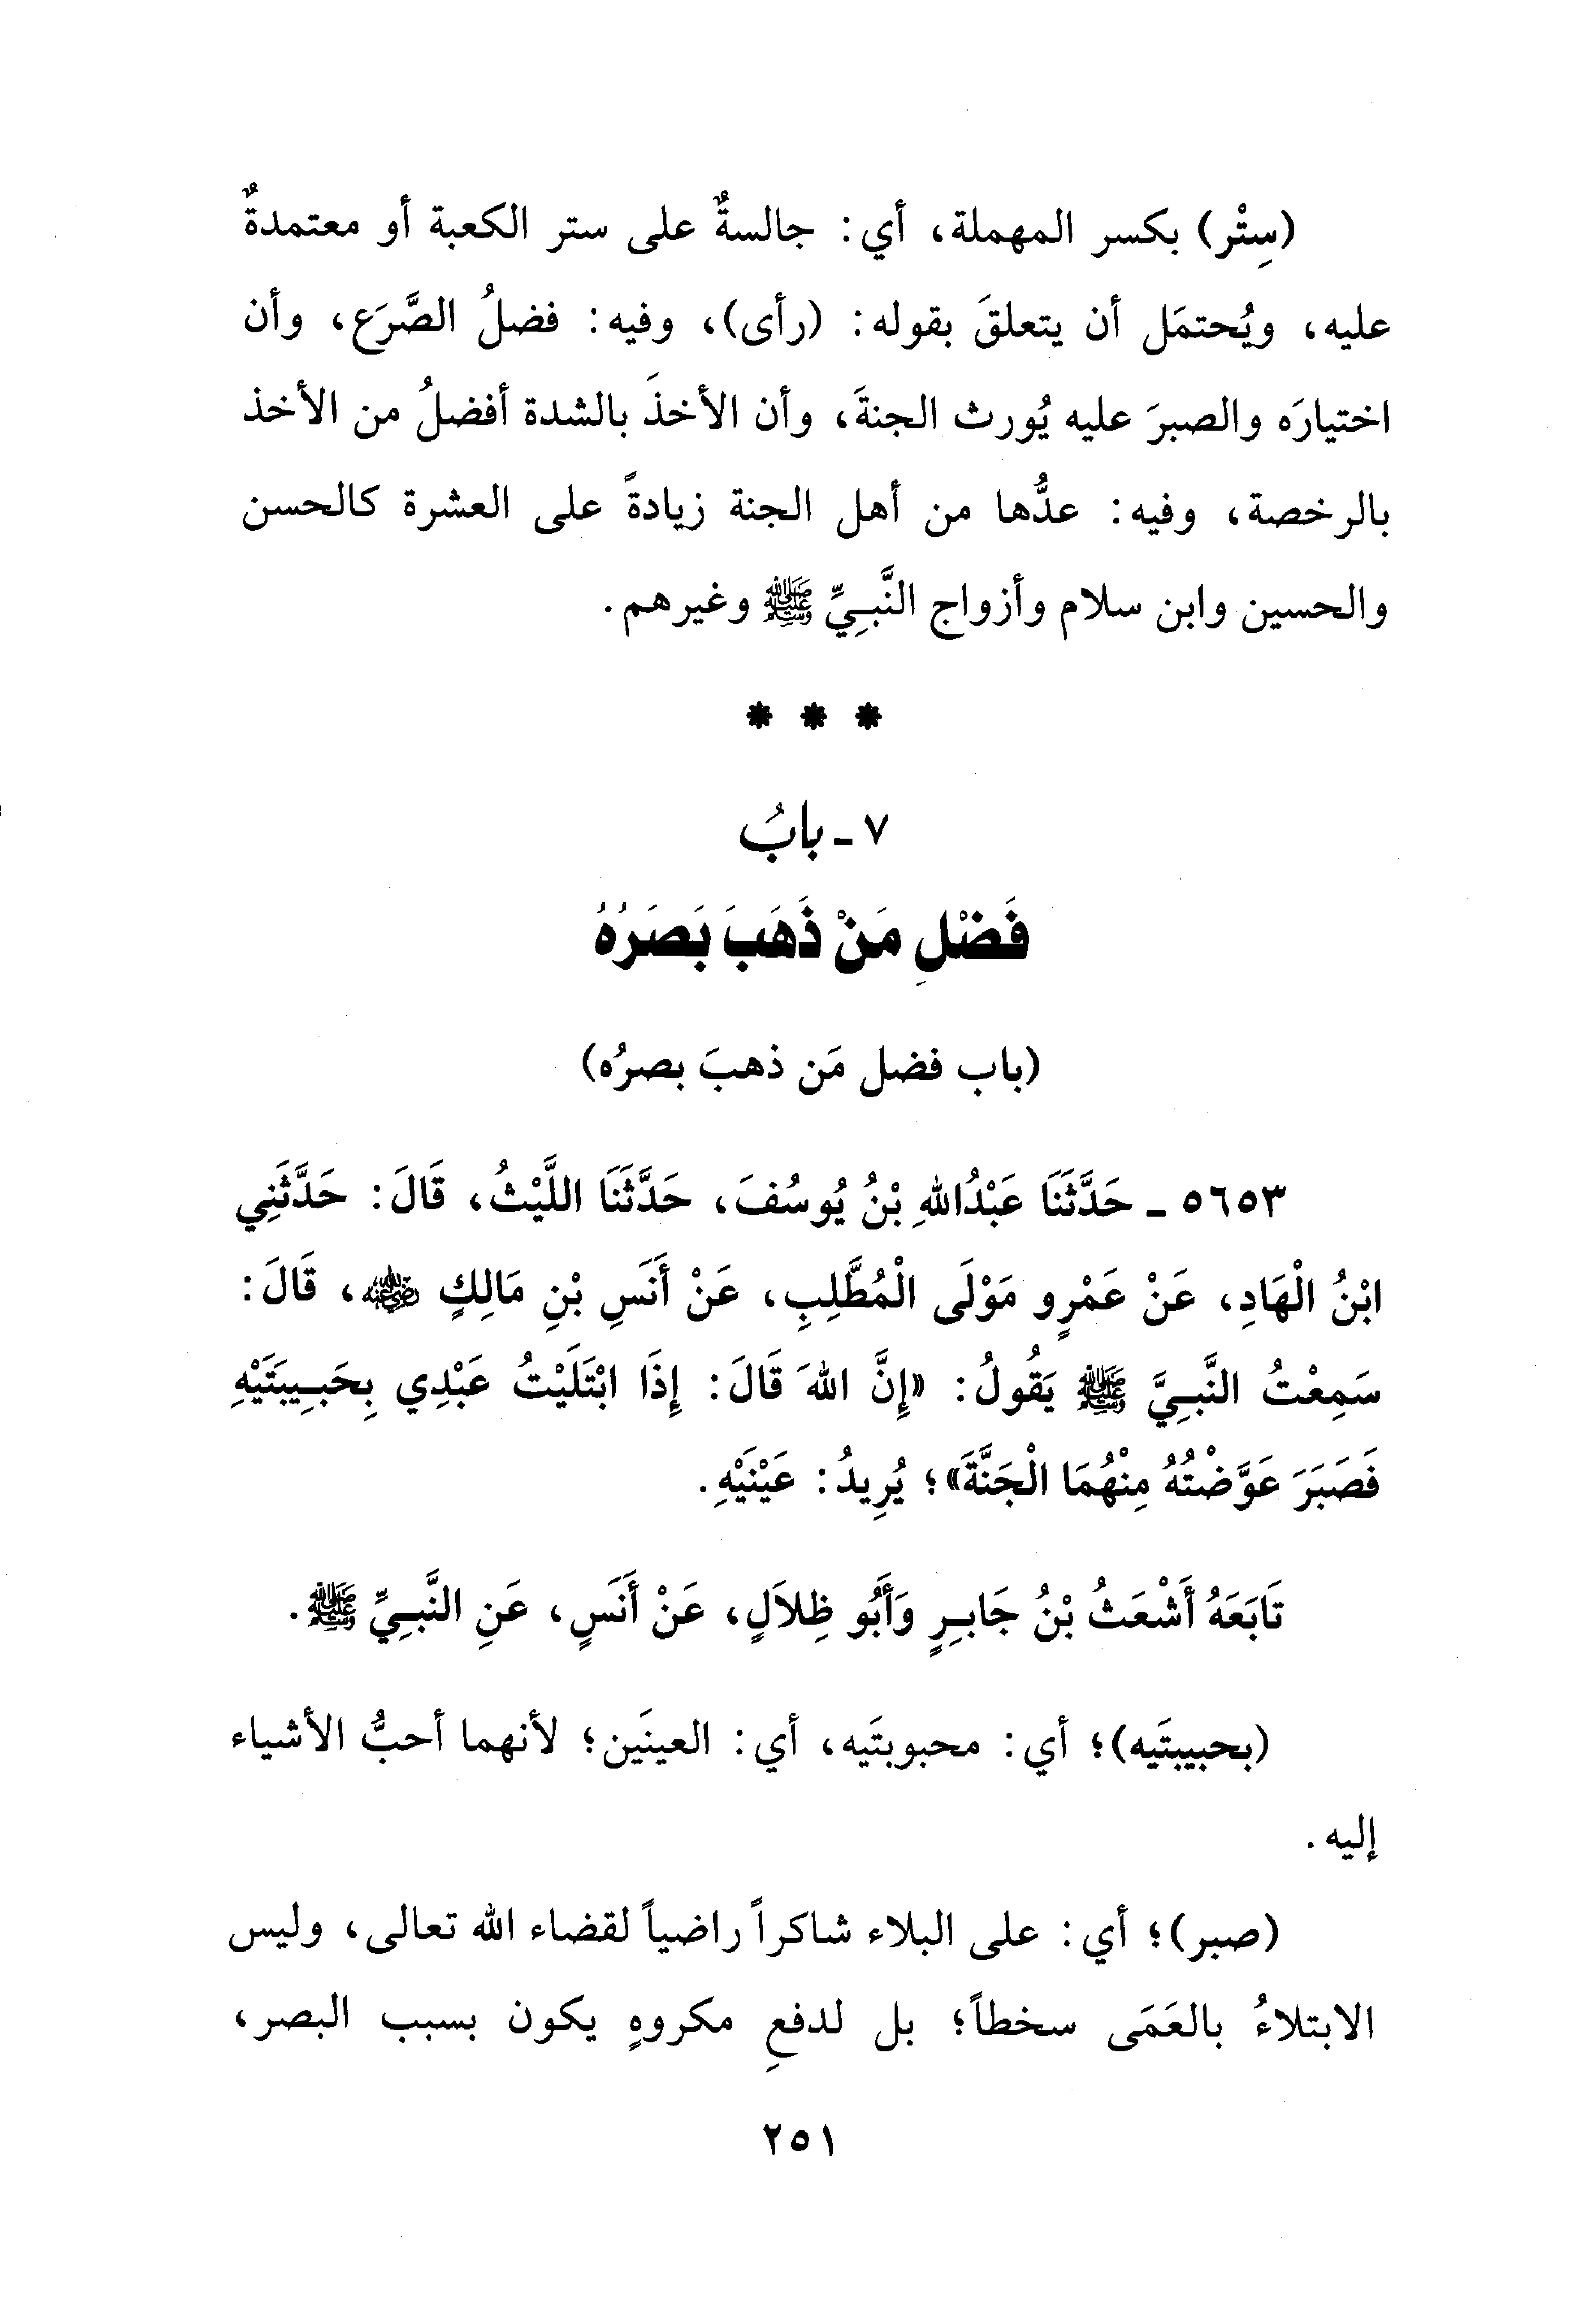 (سِتْر) بكسر المهملة، أي: جالسةٌ على ستر الكعبة أو معتمدةٌ
عليه، ويُحتمَل أن يتعلقَ بقوله: (رأى)، وفيه: فضلُ الصَّرَع، وأن
اختيارَه والصبرَ عليه يُورث الجنةَ، وأن الأخذَ بالشدة أفضلُ من الأخذ
بالرخصة، وفيه: عدُّها من أهل الجنة زيادةً على العشرة كالحسن
والحسين وابن سلام وأزواج النَّبِيِّ ﷺ وغيرهم.
* * *
٧ - بابُ
فَضْلِ مَنْ ذَهَبَ بَصَرُهُ
(باب فضل مَن ذهبَ بصرُه)
٥٦٥٣ - حَدَّثَنَا عَبْدُاللهِ بْنُ يُوسُفَ، حَدَّثَنَا اللَّيْثُ، قَالَ: حَدَّثَنِي
ابْنُ الْهَادِ، عَنْ عَمْرٍو مَوْلَى الْمُطَّلِبِ، عَنْ أَنَسِ بْنِ مَالِكٍ رضي الله عنه، قَالَ:
سَمِعْتُ النَّبِيَّ ﷺ يَقُولُ: «إِنَّ اللهَ قَالَ: إِذَا ابْتَلَيْتُ عَبْدِي بِحَبِيبَتَيْهِ
فَصَبَرَ عَوَّضْتُهُ مِنْهُمَا الْجَنَّةَ»؛ يُرِيدُ: عَيْنَيْهِ.
تَابَعَهُ أَشْعَثُ بْنُ جَابِرٍ وَأَبُو ظِلاَلٍ، عَنْ أَنَسٍ، عَنِ النَّبِيِّ ﷺ.
(بحبيبتَيه)؛ أي: محبوبتَيه، أي: العينَين؛ لأنهما أحبُّ الأشياء
إليه.
(صبر)؛ أي: على البلاء شاكراً راضياً لقضاء الله تعالى، وليس
الابتلاءُ بالعَمَى سخطاً؛ بل لدفعِ مكروهٍ يكون بسبب البصر،
٢٥١